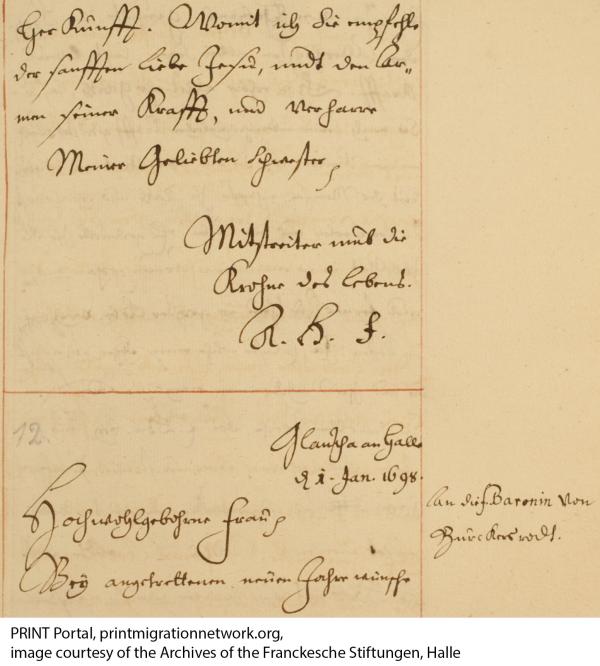 her Kunfft. Womit ich Sie empfehle
der sanfften liebe Jesu, undt den Ar-
men seiner Krafft, und verharre
Meiner Geliebten Schwester,
Mitstreiter umb die
Krohne des lebens.
A. H. F.
12.
Glaucha an Halle
d 1. Jan. 1698.
Hochwohlgebohrne Frau,
An die Baronin von
Bey angetrettenen neuen Jahre wünsche
PRINT Portal, printmigrationnetwork.org,
image courtesy of the Archives of the Franckesche Stiftungen, Halle